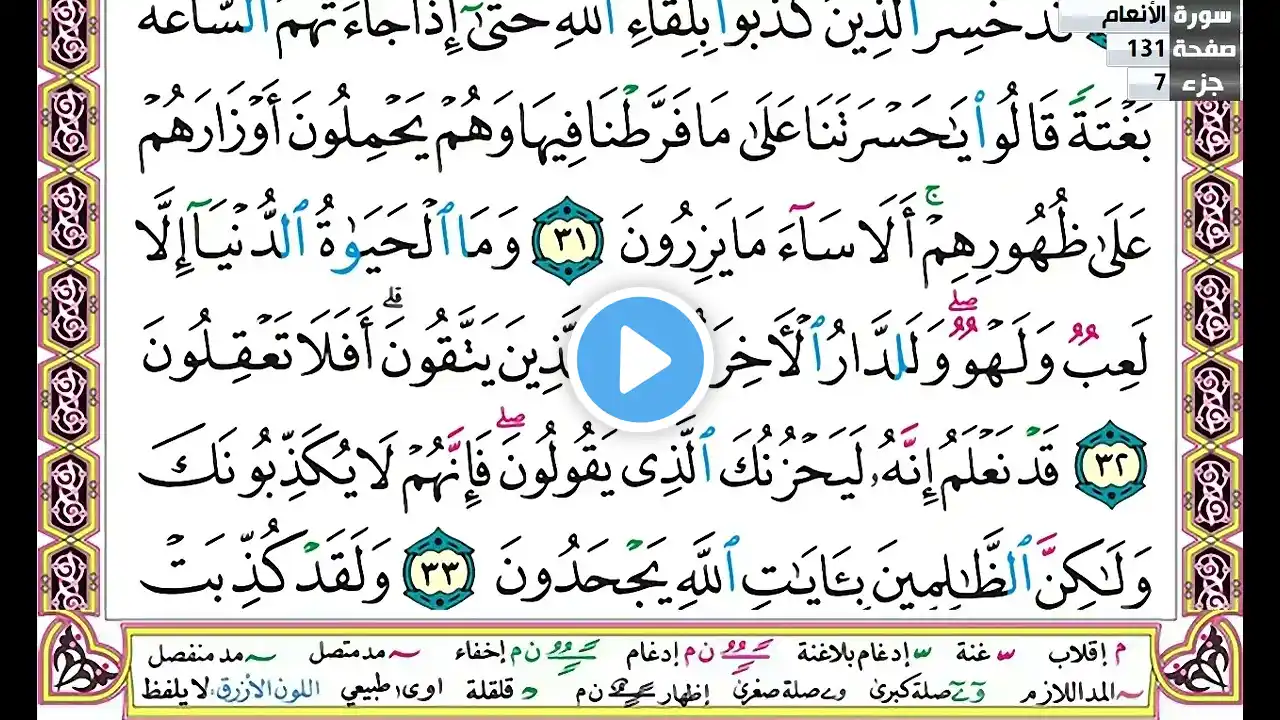 سورة الأنعام
صفحة 131
جزء 7
خَسِرَ ٱلَّذِينَ كَذَّبُوا۟ بِلِقَآءِ ٱللَّهِ حَتَّىٰٓ إِذَا جَآءَتْهُمُ ٱلسَّاعَةُ
بَغْتَةً قَالُوا۟ يَـٰحَسْرَتَنَا عَلَىٰ مَا فَرَّطْنَا فِيهَا وَهُمْ يَحْمِلُونَ أَوْزَارَهُمْ
عَلَىٰ ظُهُورِهِمْ ۚ أَلَا سَآءَ مَا يَزِرُونَ ٣١ وَمَا ٱلْحَيَوٰةُ ٱلدُّنْيَآ إِلَّا
لَعِبٌ وَلَهْوٌ ۖ وَلَلدَّارُ ٱلْـَٔاخِرَ يَتَّقُونَ ۗ أَفَلَا تَعْقِلُونَ
٣٢ قَدْ نَعْلَمُ إِنَّهُۥ لَيَحْزُنُكَ ٱلَّذِى يَقُولُونَ ۖ فَإِنَّهُمْ لَا يُكَذِّبُونَكَ
وَلَـٰكِنَّ ٱلظَّـٰلِمِينَ بِـَٔايَـٰتِ ٱللَّهِ يَجْحَدُونَ ٣٣ وَلَقَدْ كُذِّبَتْ
م إقلاب غنة إدغام بلاغنة ن م إدغام ن م إخفاء مد متصل مد منفصل
المد اللازم صلة كبرى صلة صغرى إظهار ن م قلقلة اوى طبيعي اللون الأزرق لا يلفظ